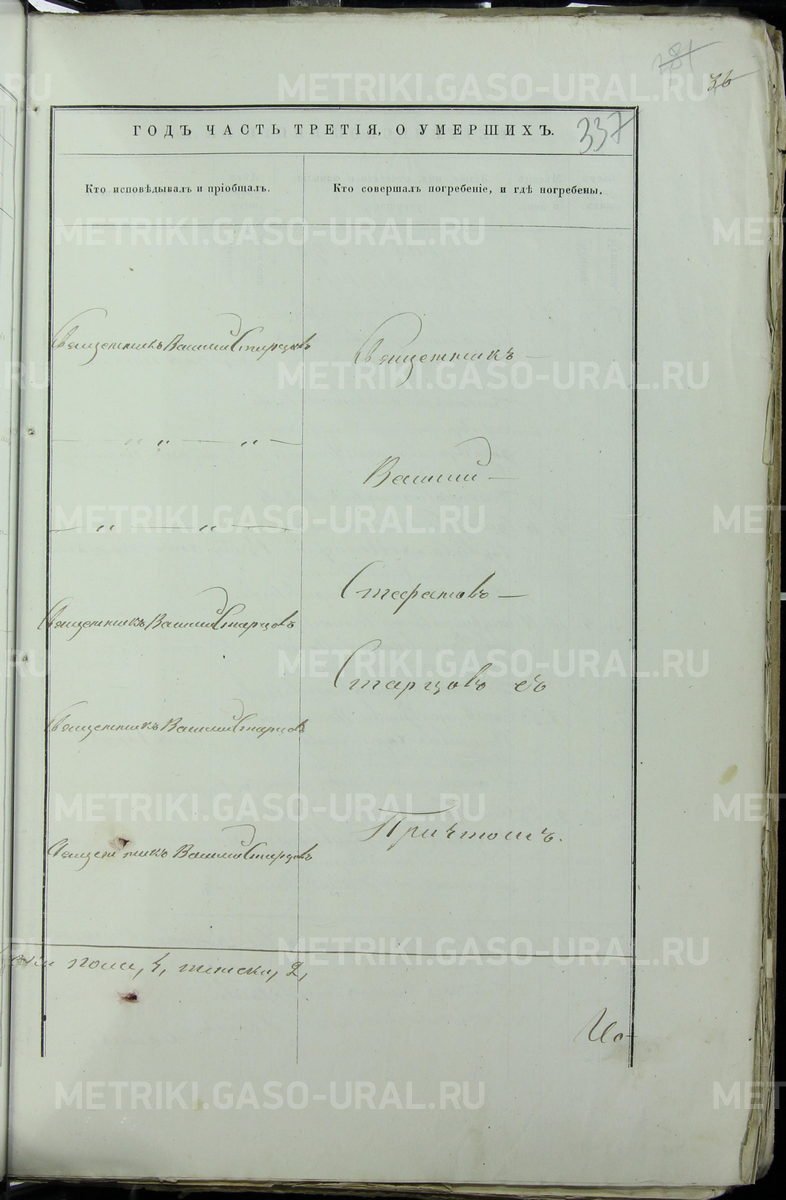 781
36
337
ГОДЪ ЧАСТЬ ТРЕТІЯ, О УМЕРШИХЪ.
Кто исповѣдывалъ и пріобщалъ.
Кто совершалъ погребеніе, и гдѣ погребены.
Священникъ Василий Старцовъ
Священникъ —
— „ — „ —
Василий —
— „ — „ —
Священникъ Василий Старцовъ
Стафатовъ —
Старцовъ съ
Священникъ Василий Старцовъ
Причтомъ.
Священникъ Василий Старцовъ
пола, 4, женска, 2,
METRIKI.GASO-URAL.RU